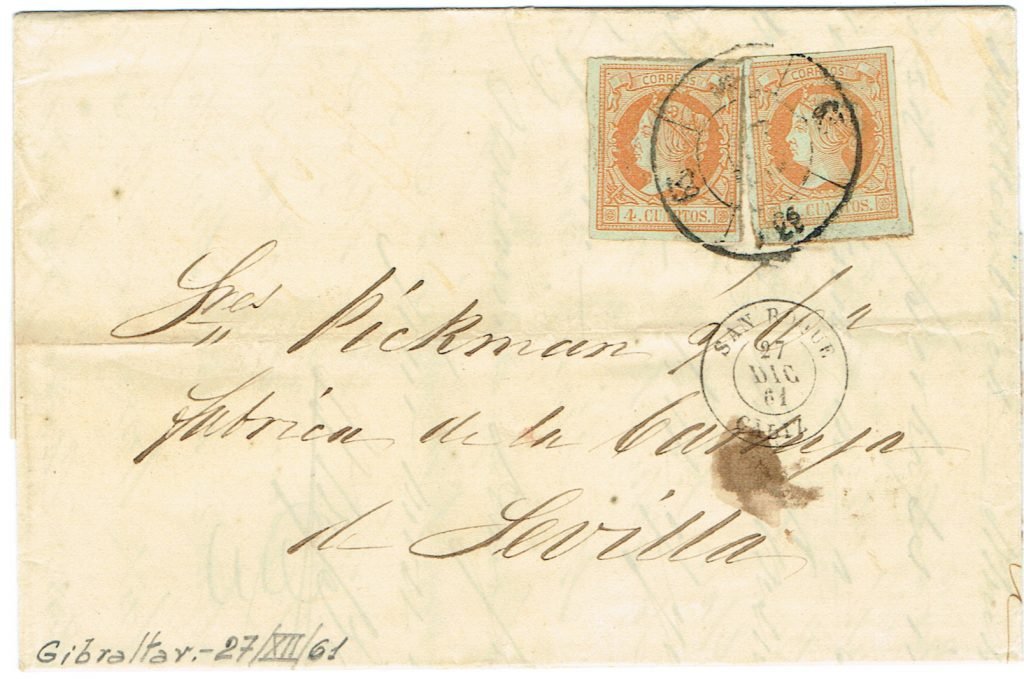 CORREOS
4. CUARTOS.
CORREOS
CUARTOS.
Sres Pickman y Cª
fabrica de la Cartuja
de Sevilla
SAN ROQUE
27
DIC
61
CADIZ
Gibraltar.-27/XII/61